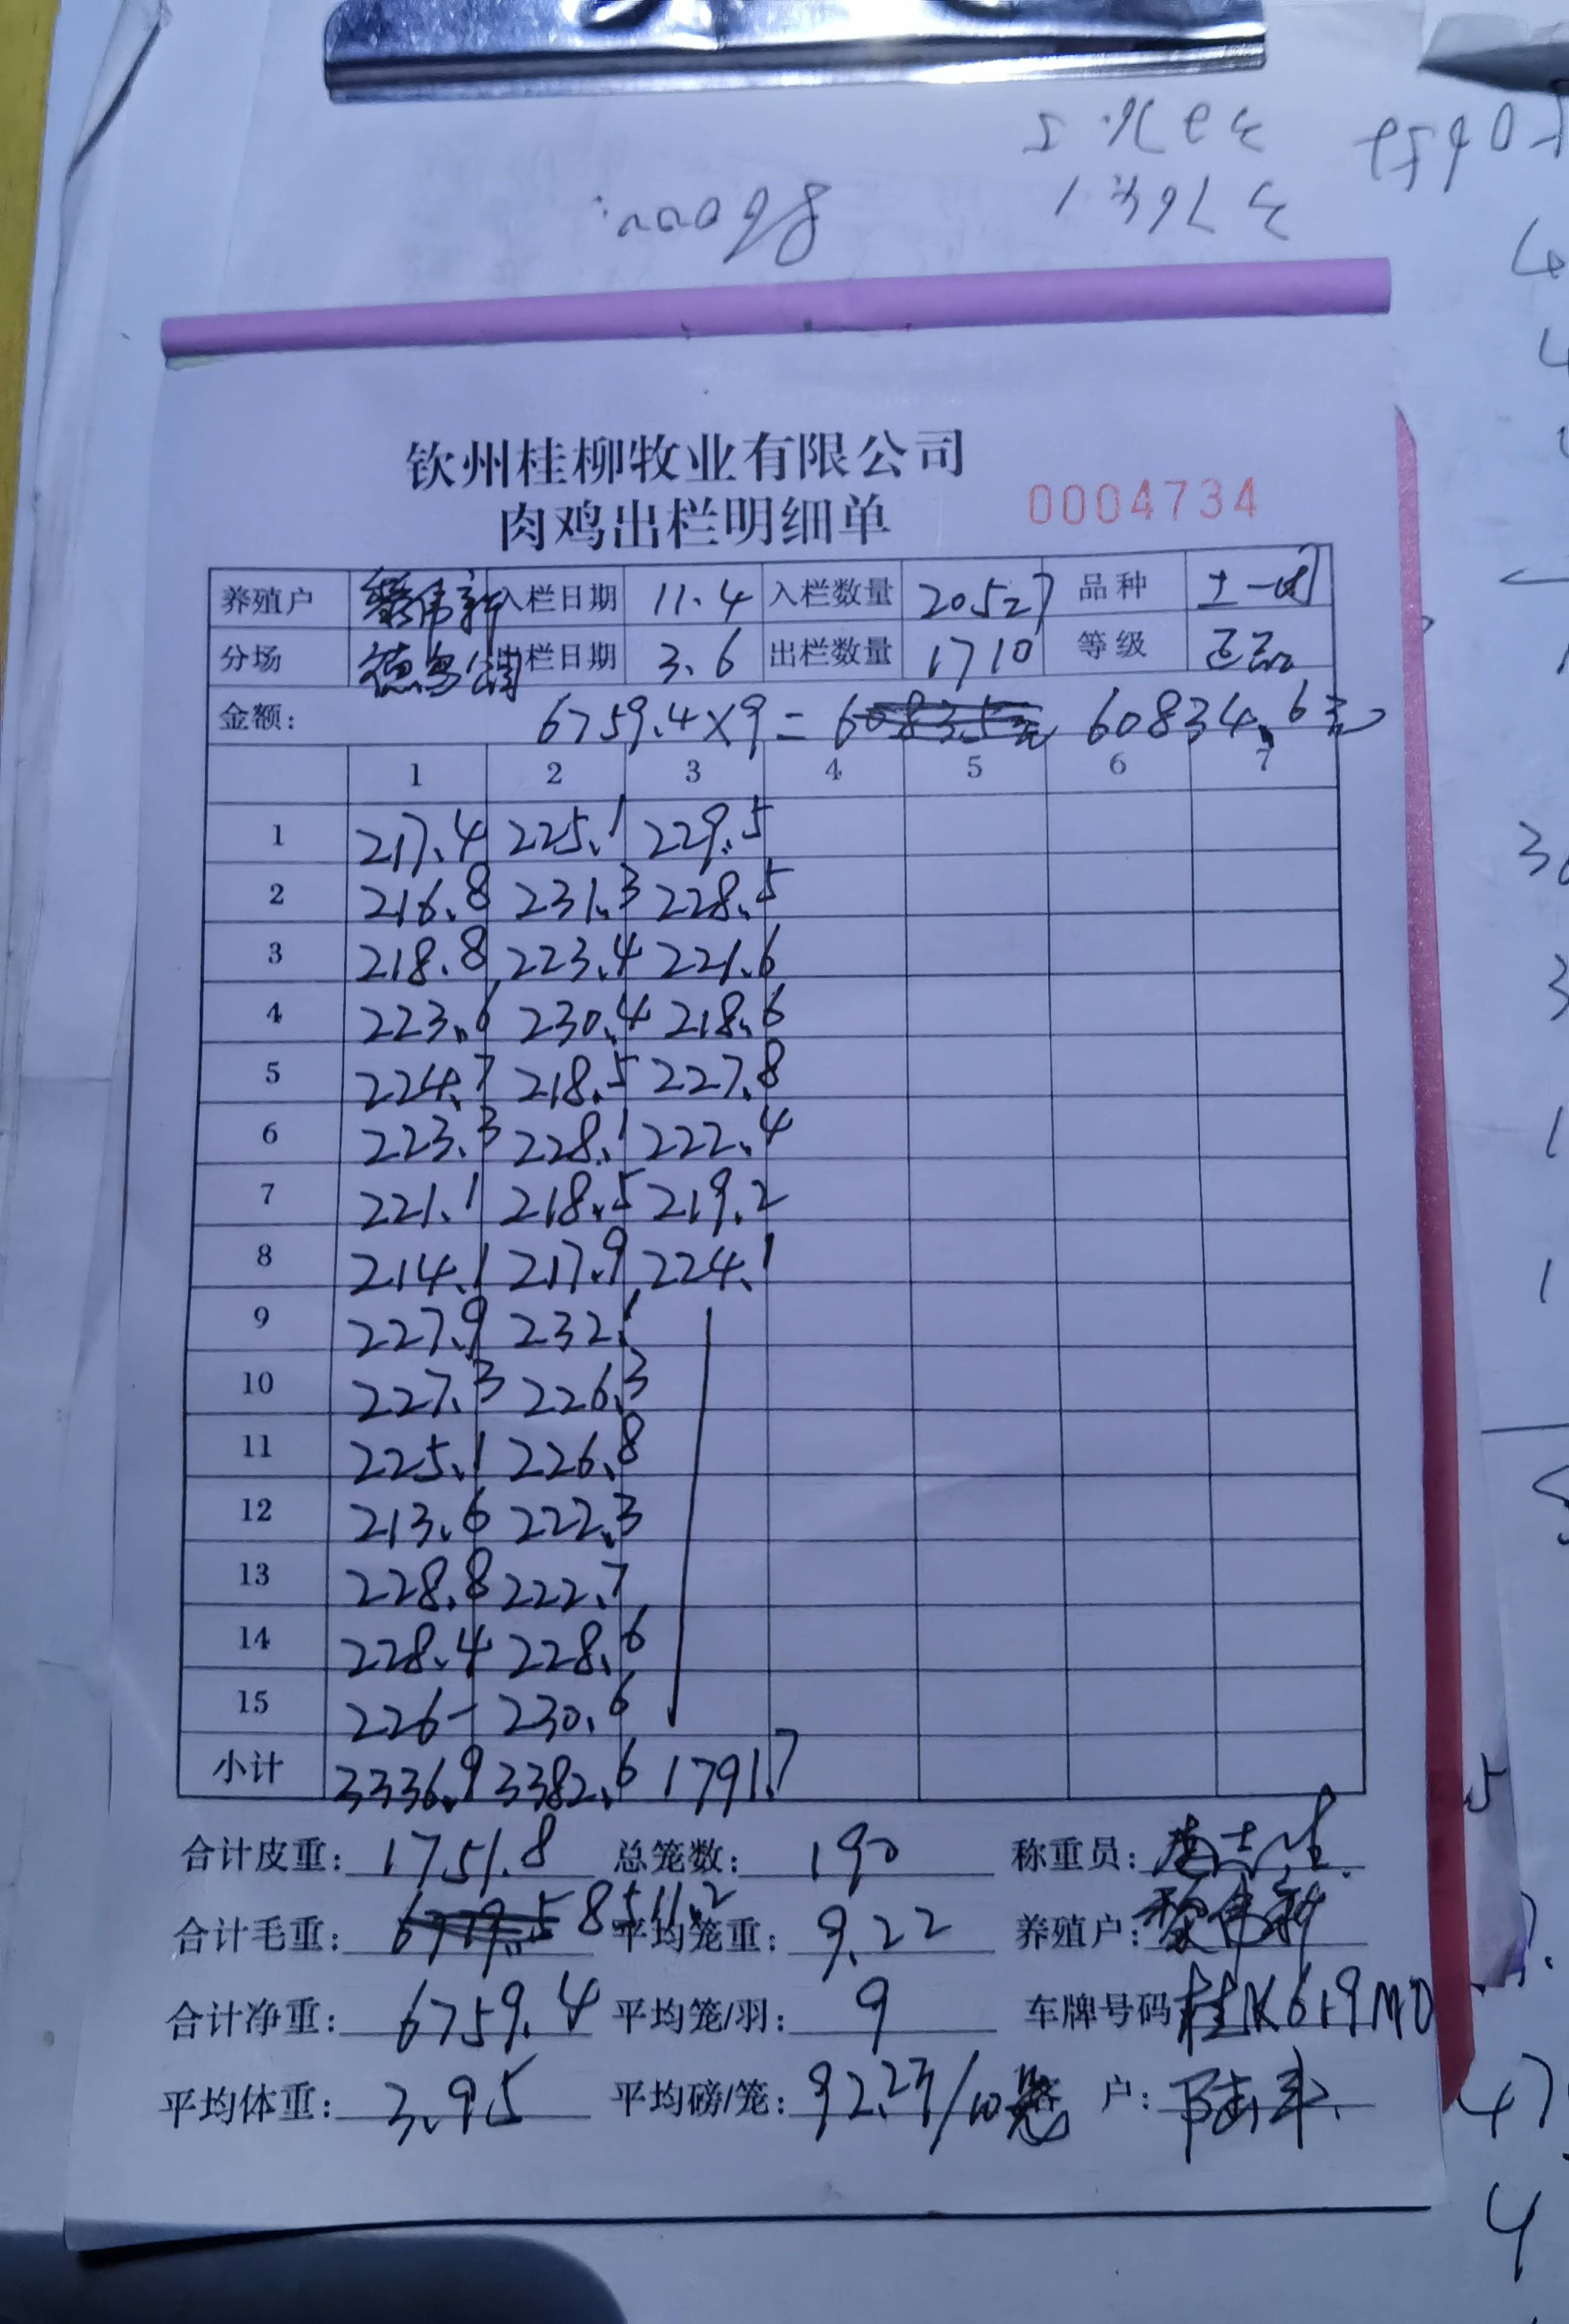 钦州桂柳牧业有限公司
肉鸡出栏明细单 0004734
养殖户 黎伟新 入栏日期 11.4 入栏数量 20527 品种 土一
分场 出栏日期 3.6 出栏数量 1710 等级 正品
金额: 6759.4×9= 60834.6元
1 2 3 4 5 6 7
1 217.4 225.1 229.5
2 216.8 231.3 228.5
3 218.8 223.4 221.6
4 223.6 230.4 218.6
5 224.7 218.5 227.8
6 223.3 228.1 222.4
7 221.1 218.5 219.2
8 214.1 217.9 224.1
9 227.9 232.1
10 227.3 226.3
11 225.1 226.8
12 213.6 222.3
13 228.8 222.7
14 228.4 228.6
15 226- 230.6
小计 3336.9 3382.6 1791.7
合计皮重: 1751.8 总笼数: 190 称重员:
合计毛重: 8511.2 平均笼重: 9.22 养殖户: 黎伟新
合计净重: 6759.4 平均笼/羽: 9 车牌号码 桂K619M0
平均体重: 3.95 平均磅/笼: 92.2斤/10笼 户: